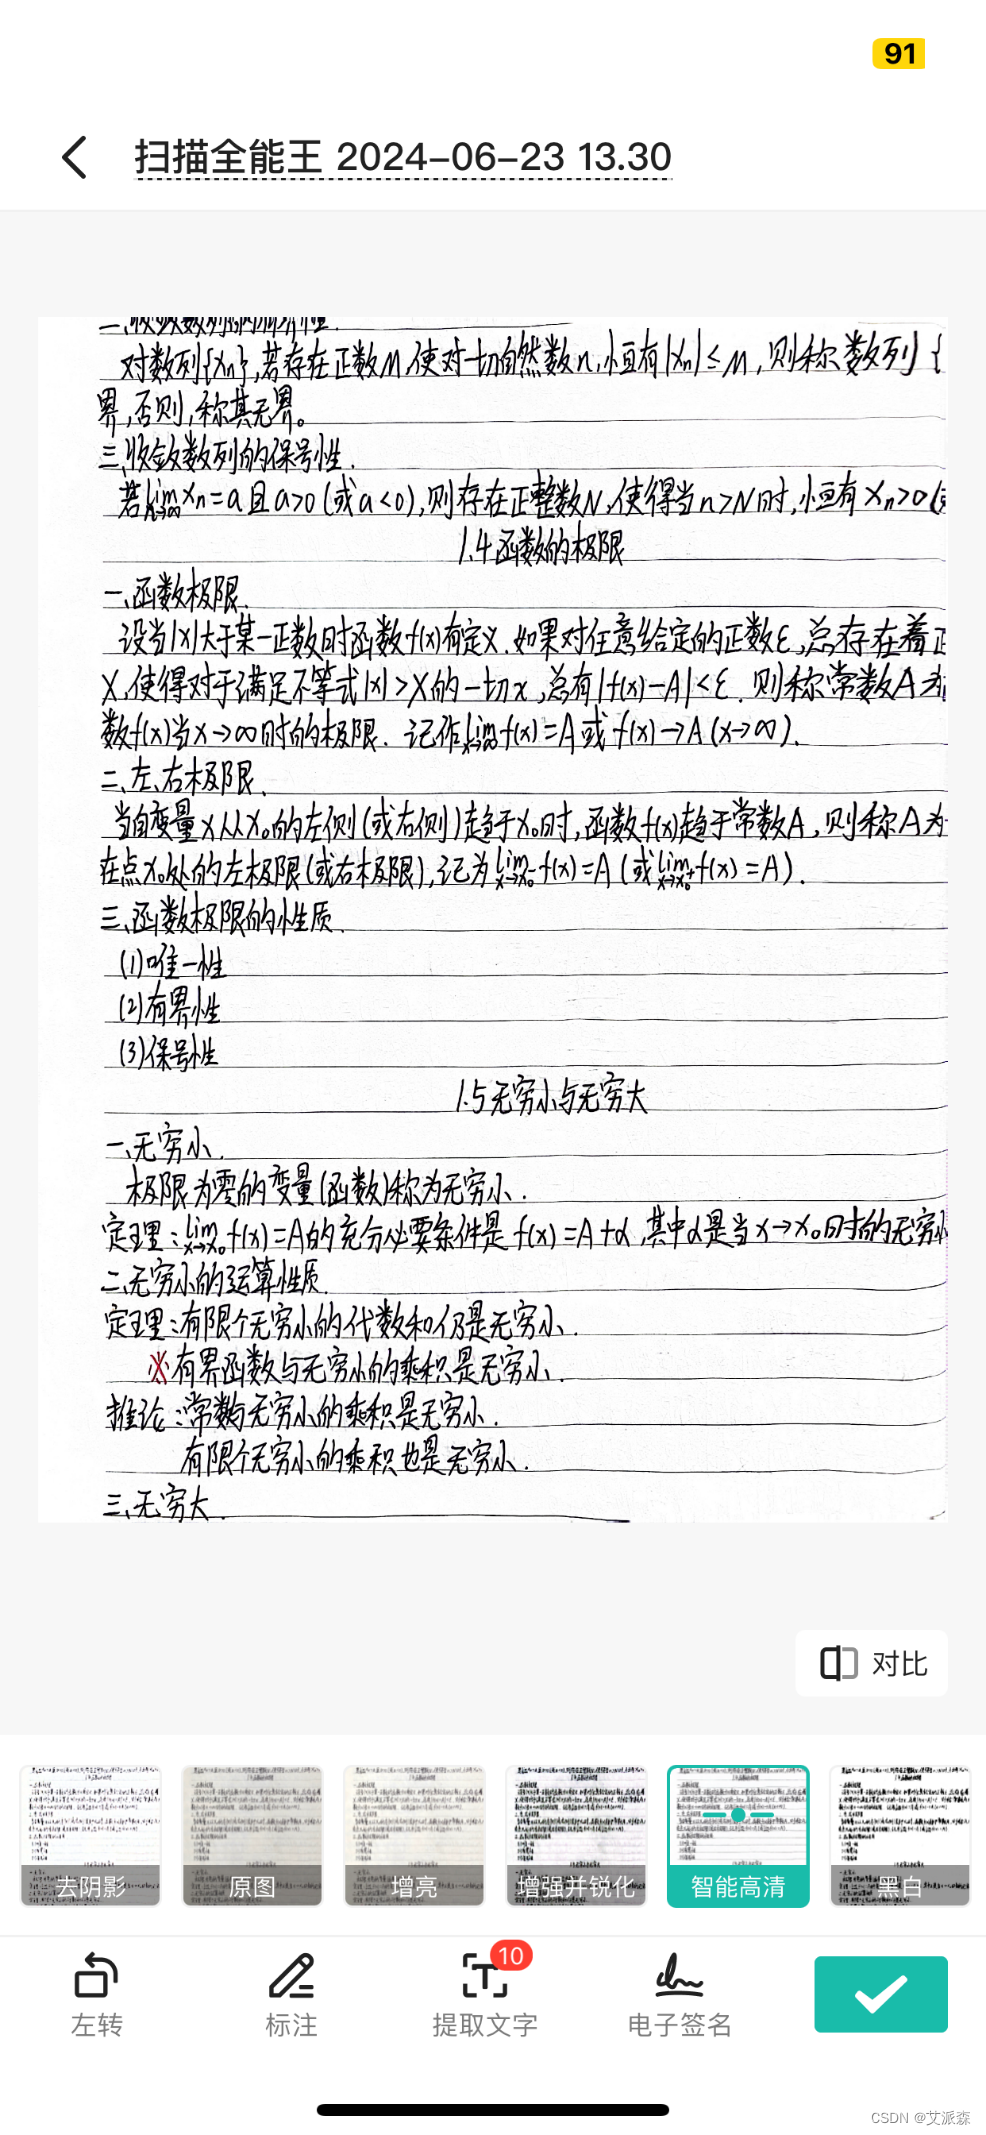 91
扫描全能王 2024-06-23 13.30
二、收敛数列的有界性.
对数列{xn},若存在正数M,使对一切自然数n,恒有|xn|≤M,则称数列{
界,否则,称其无界。
三、收敛数列的保号性.
若lim n→∞ xn=a且a>0(或a<0),则存在正整数N,使得当n>N时,恒有xn>0(
1.4函数的极限
一、函数极限.
设当|x|大于某一正数时函数f(x)有定义.如果对任意给定的正数ε,总存在着正
X,使得对于满足不等式|x|>X的一切x,总有|f(x)-A|<ε.则称常数A为
数f(x)当x→∞时的极限.记作lim x→∞ f(x)=A或f(x)→A(x→∞).
二、左、右极限.
当自变量x从x₀的左侧(或右侧)趋于x₀时,函数f(x)趋于常数A,则称A为
在点x₀处的左极限(或右极限),记为lim x→x₀⁻ f(x)=A(或lim x→x₀⁺ f(x)=A).
三、函数极限的性质.
(1)唯一性
(2)有界性
(3)保号性
1.5无穷小与无穷大
一、无穷小.
极限为零的变量(函数)称为无穷小.
定理:lim x→x₀ f(x)=A的充分必要条件是f(x)=A+α,其中α是当x→x₀时的无穷小
二、无穷小的运算性质.
定理:有限个无穷小的代数和仍是无穷小.
※有界函数与无穷小的乘积是无穷小.
推论:常数与无穷小的乘积是无穷小.
有限个无穷小的乘积也是无穷小.
三、无穷大.
对比
去阴影 原图 增亮 增强并锐化 智能高清 黑白
10
左转 标注 提取文字 电子签名
CSDN @艾派森